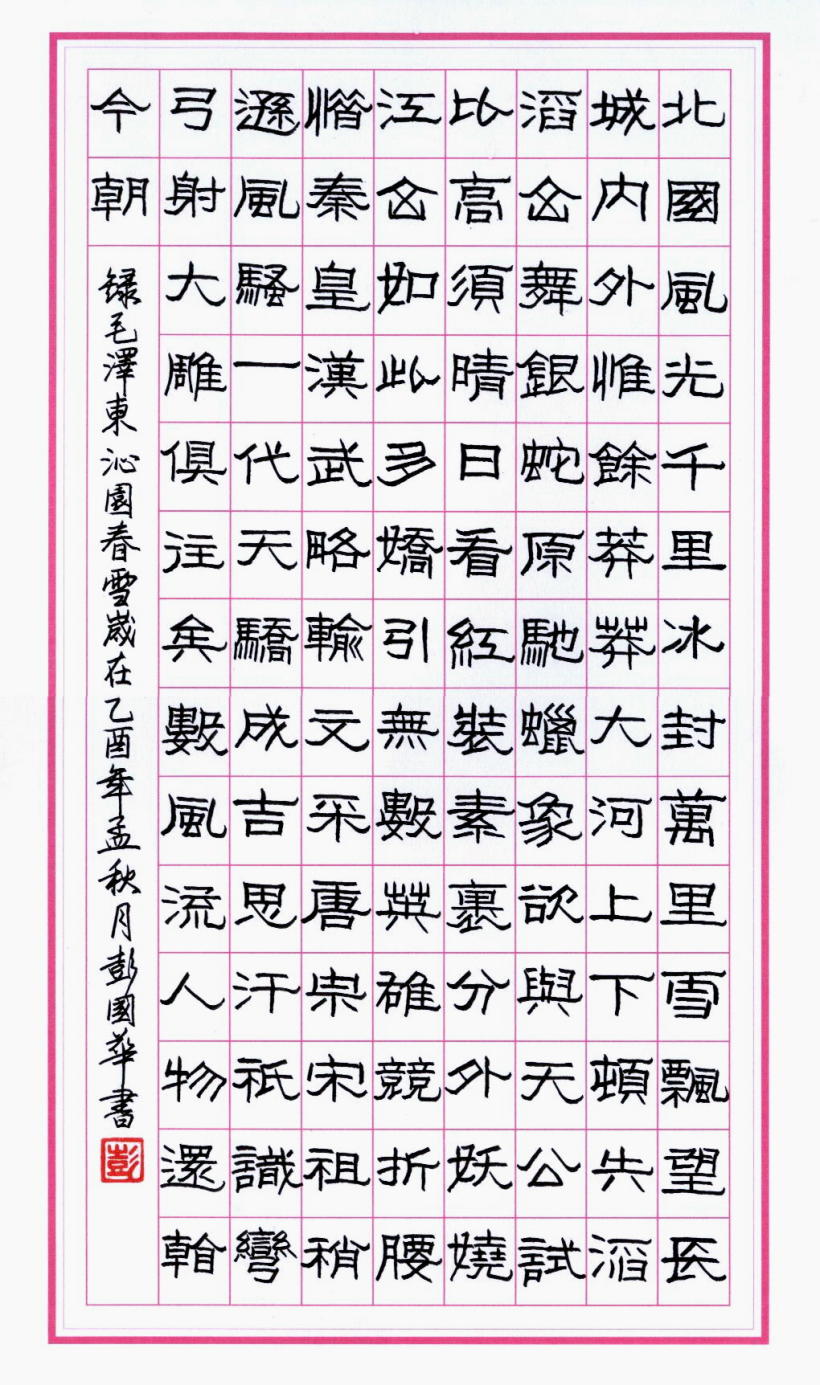 北國風光千里冰封萬里雪飄望長
城內外惟餘莽莽大河上下頓失滔
滔山舞銀蛇原馳蠟象欲與天公試
比高須晴日看紅裝素裹分外妖嬈
江山如此多嬌引無數英雄競折腰
惜秦皇漢武略輸文采唐宗宋祖稍
遜風騷一代天驕成吉思汗祇識彎
弓射大雕俱往矣數風流人物還看
今朝
錄毛澤東沁園春雪歲在乙酉年孟秋月彭國華書
彭